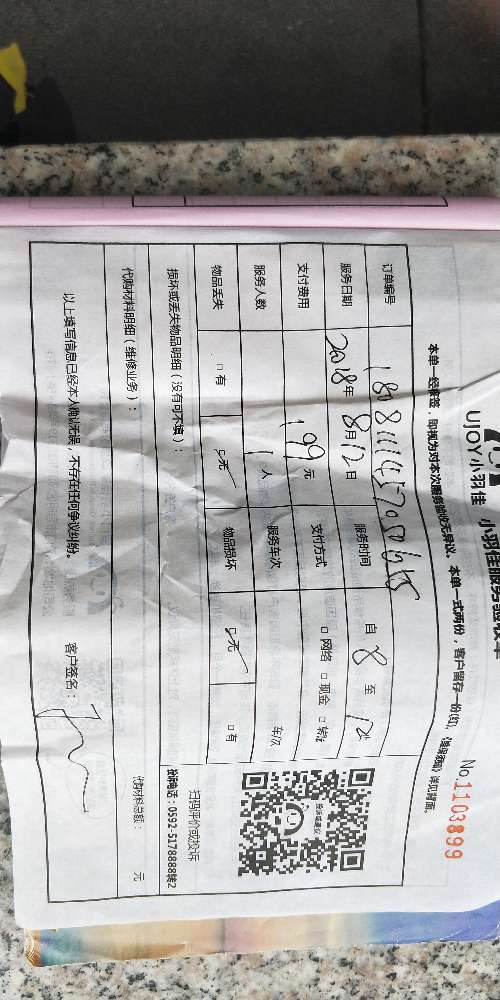 UJOY小羽佳 小羽佳服务验收单
No.1103899
本单一经客签，即视为对本次服务验收无异议。本单一式两份，客户留存一份(红)，
订单编号
服务日期 2018年8月12日 服务时间 自 8 至 12
支付费用 199元 支付方式 □网络 □现金 □转账
服务人数 1人 服务车次 车/次
物品丢失 □有 □无 物品损坏 □无 □有
损坏或丢失物品明细（没有可不填）：
扫码评价或投诉
投诉电话：0592-5178888转2
代购材料明细（维修业务）：
代购材料总额： 元
以上填写信息已经本人确认无误，不存在任何争议纠纷。 客户签名：